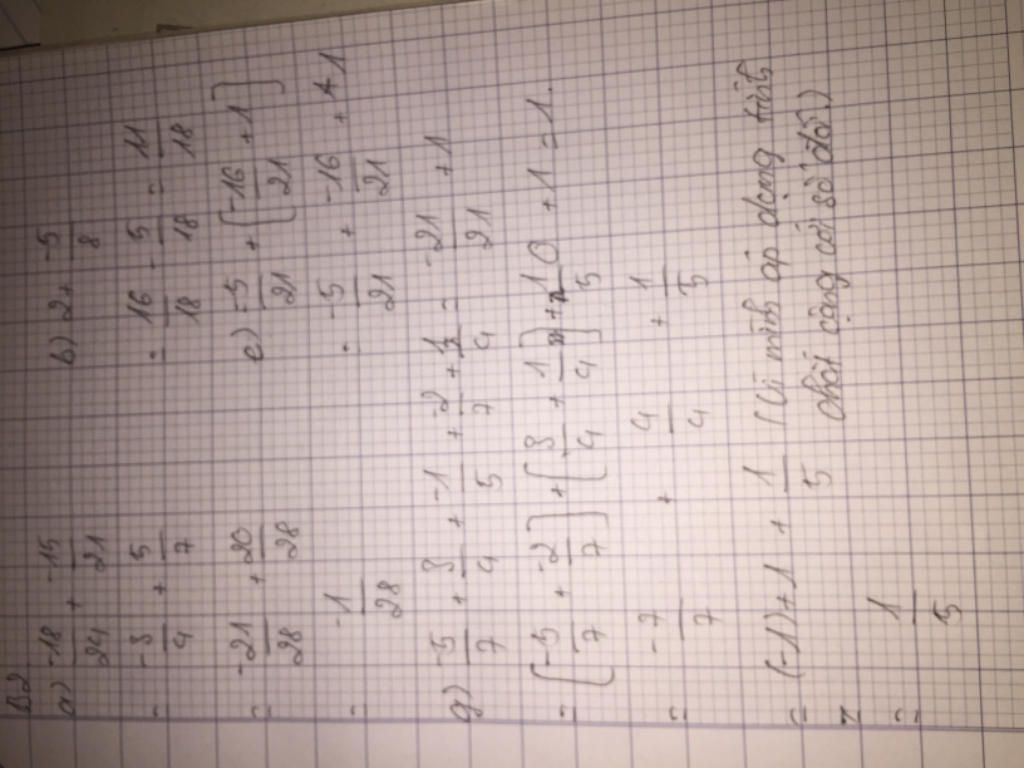 B2
a) -18/24 + -15/21
= -3/4 + 5/7
= -21/28 + 20/28
= -1/28
b) 2 + -5/8
= 16/18 - 5/18 = 11/18
e) -5/21 + [-16/21 + 1]
= -5/21 + -16/21 + 1
= -21/21 + 1
= 0 + 1 = 1.
g) -5/7 + 3/4 + -1/5 + -2/7 + 1/4
= [-5/7 + -2/7] + [3/4 + 1/4] + 1/5
= -7/7 + 4/4 + 1/5
= (-1) + 1 + 1/5 (Vì mình áp dụng tính
chất cộng với số đối)
= 1/5